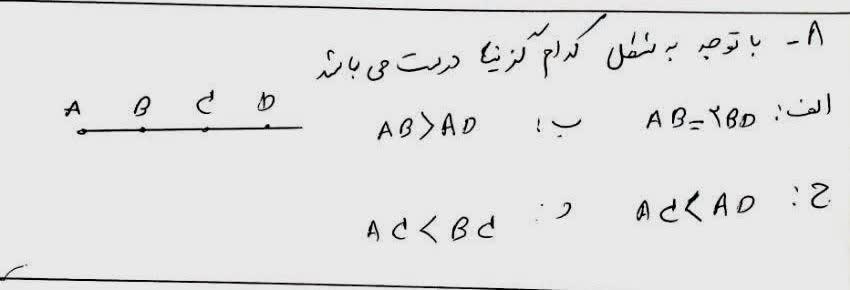 ۸- با توجه به شکل کدام گزینه درست می باشد
A B C D
الف: AB=۲BD ب: AB>AD
ج: AC<AD د: AC<BC